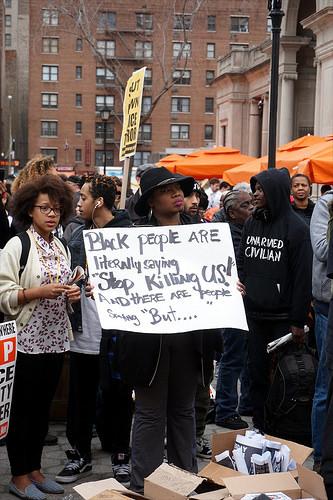 Black people are
literally saying
"Stop Killing US!"
And there are people
saying "But...."
UNARMED
CIVILIAN